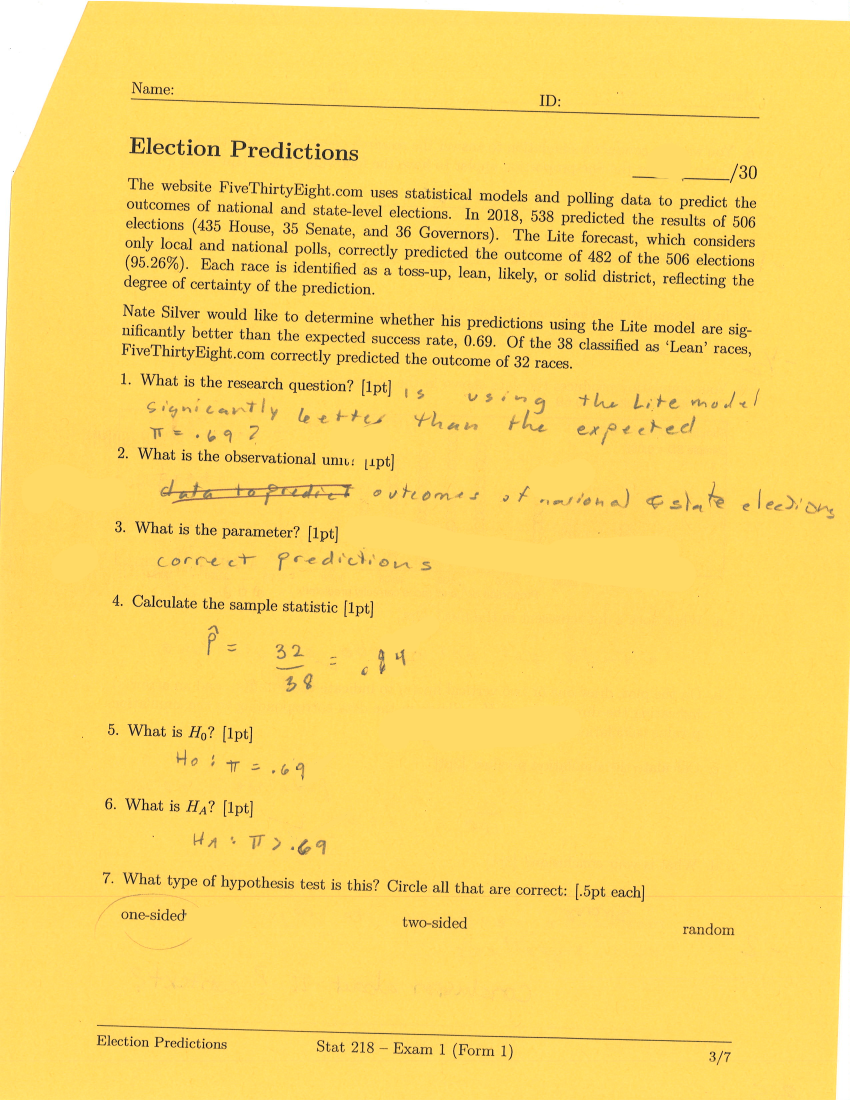 Name:
ID:
Election Predictions
/30
The website FiveThirtyEight.com uses statistical models and polling data to predict the
outcomes of national and state-level elections. In 2018, 538 predicted the results of 506
elections (435 House, 35 Senate, and 36 Governors). The Lite forecast, which considers
only local and national polls, correctly predicted the outcome of 482 of the 506 elections
(95.26%). Each race is identified as a toss-up, lean, likely, or solid district, reflecting the
degree of certainty of the prediction.
Nate Silver would like to determine whether his predictions using the Lite model are sig-
nificantly better than the expected success rate, 0.69. Of the 38 classified as ‘Lean’ races,
FiveThirtyEight.com correctly predicted the outcome of 32 races.
1. What is the research question? [1pt] is using the Lite model
signicantly better than the expected
π = .69 ?
2. What is the observational unit? [1pt]
data to predict outcomes of national & state elections
3. What is the parameter? [1pt]
correct predictions
4. Calculate the sample statistic [1pt]
p̂ = 32/38 = .84
5. What is H₀? [1pt]
Ho : π = .69
6. What is H_A? [1pt]
HA : π > .69
7. What type of hypothesis test is this? Circle all that are correct: [.5pt each]
one-sided two-sided random
Election Predictions Stat 218 – Exam 1 (Form 1) 3/7